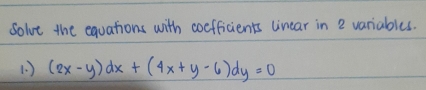 Solve the equations with coefficients linear in 2 variables.
1.) (2x-y)dx + (4x+y-6)dy = 0